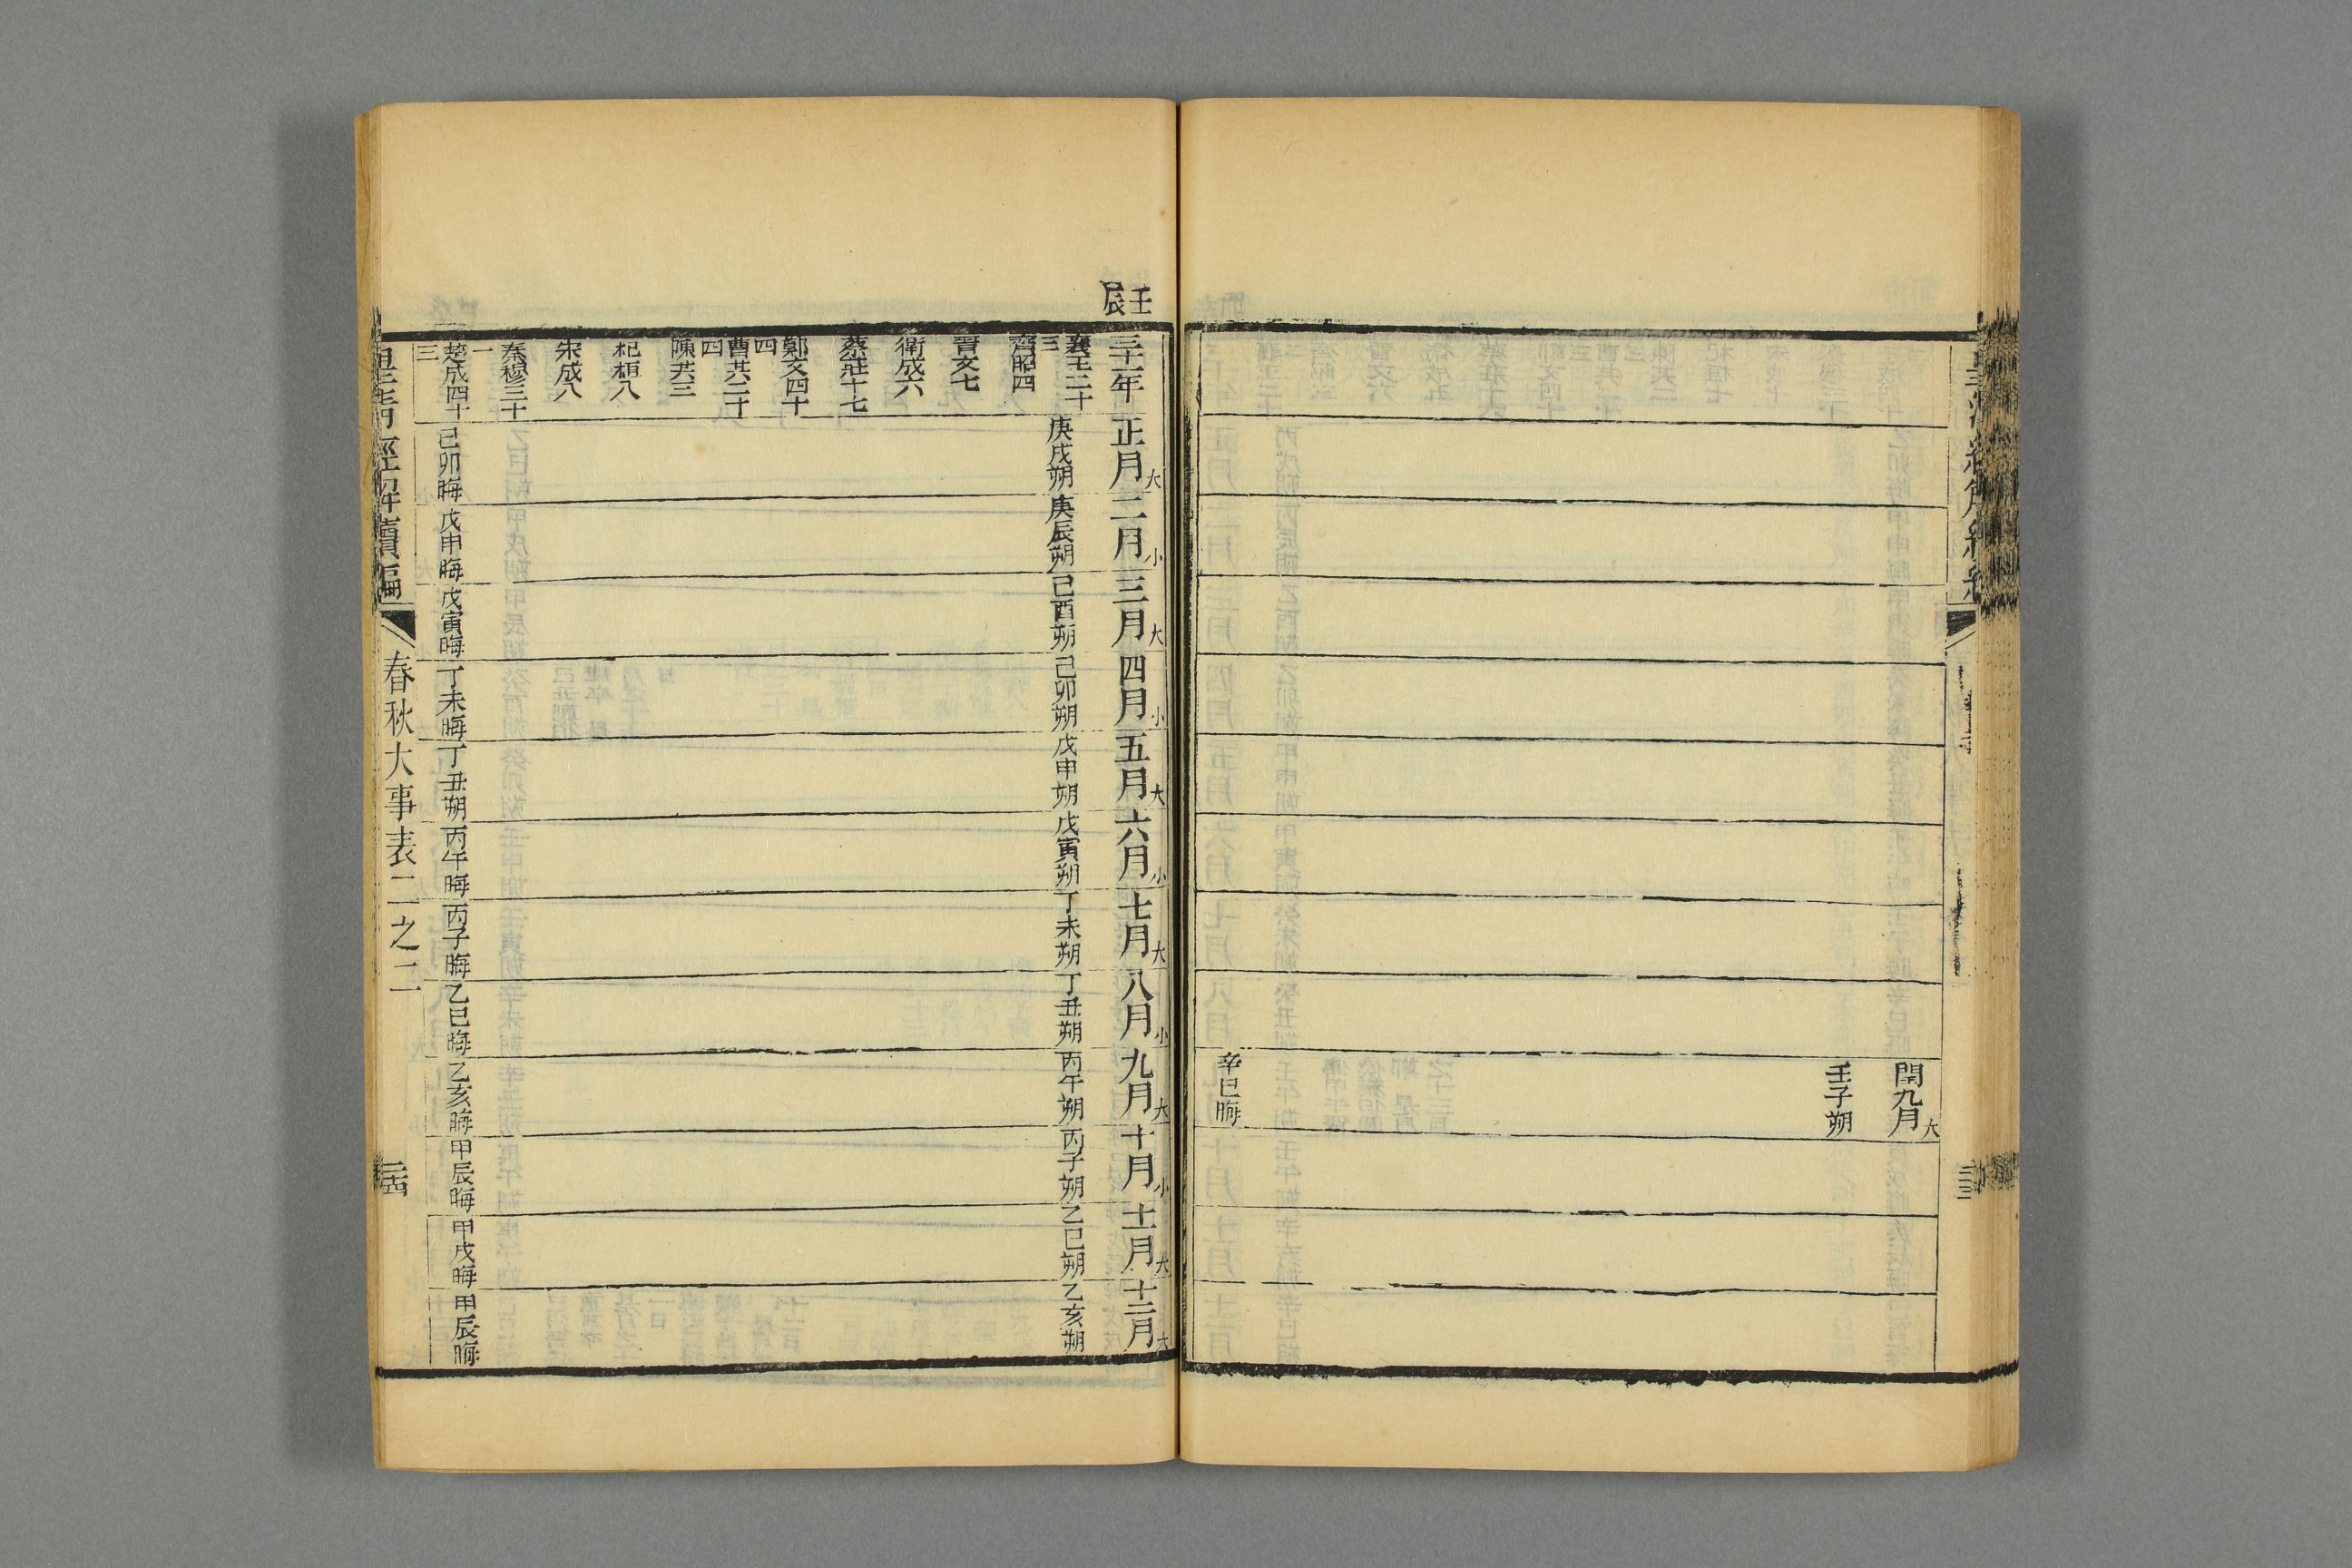 閏九月大
壬子朔
辛巳晦
壬辰
三十一年
襄王二十三
齊昭四
晉文七
衛成六
蔡莊十七
鄭文四十四
曹共二十四
陳共三
杞桓八
宋成八
秦穆三十一
楚成四十三
正月大
庚戌朔
己卯晦
二月小
庚辰朔
戊申晦
三月大
己酉朔
戊寅晦
四月小
己卯朔
丁未晦
五月大
戊申朔
丁丑朔
六月小
戊寅朔
丙午晦
七月大
丁未朔
丙子晦
八月小
丁丑朔
乙巳晦
九月大
丙午朔
乙亥晦
十月小
丙子朔
甲辰晦
十一月大
乙巳朔
甲戌晦
十二月大
乙亥朔
甲辰晦
皇清經解續編
春秋大事表二之二
三十四